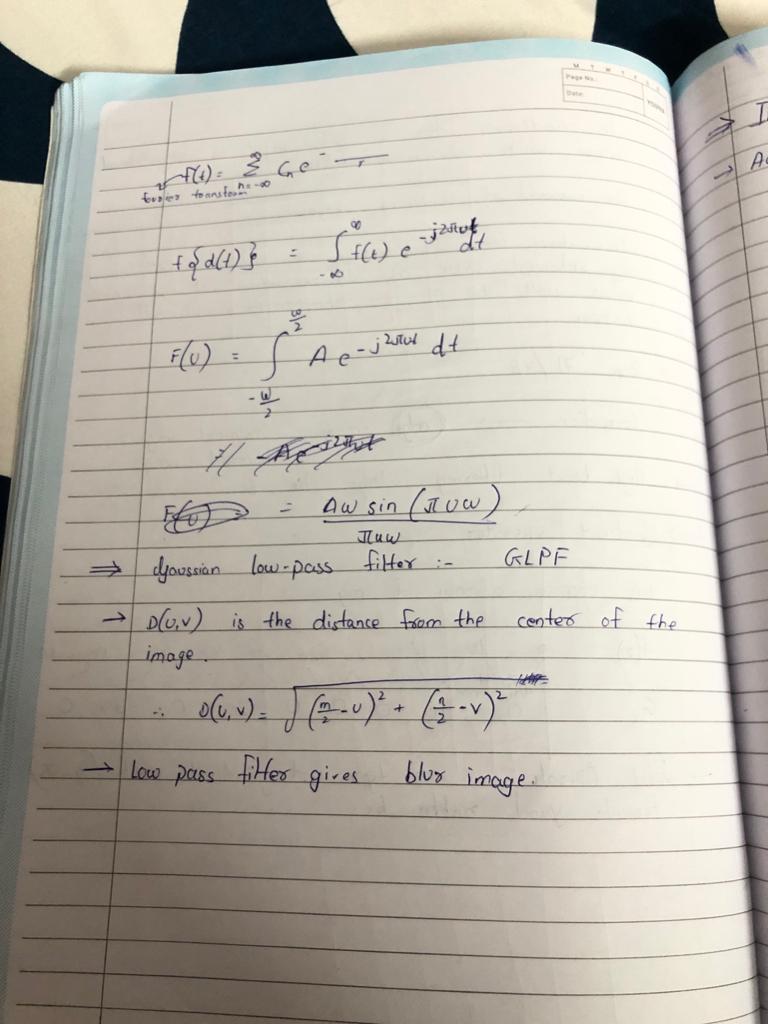 M T W T F S S
Page No.:
Date:
YOUVA
f(t) = ∞ Σ n=-∞ Cn e -
fourier transform
f{d(t)} = ∫ ∞ -∞ f(t) e^-j2πut dt
F(u) = ∫ w/2 -w/2 A e^-j2πut dt
F(u) = Aw sin (πuw) / πuw
⇒ Gaussian low-pass filter :- GLPF
→ D(u,v) is the distance from the center of the
image.
∴ D(u,v) = √(m/2 - u)² + (n/2 - v)²
→ low pass filter gives blur image.
⇒ I
→ A